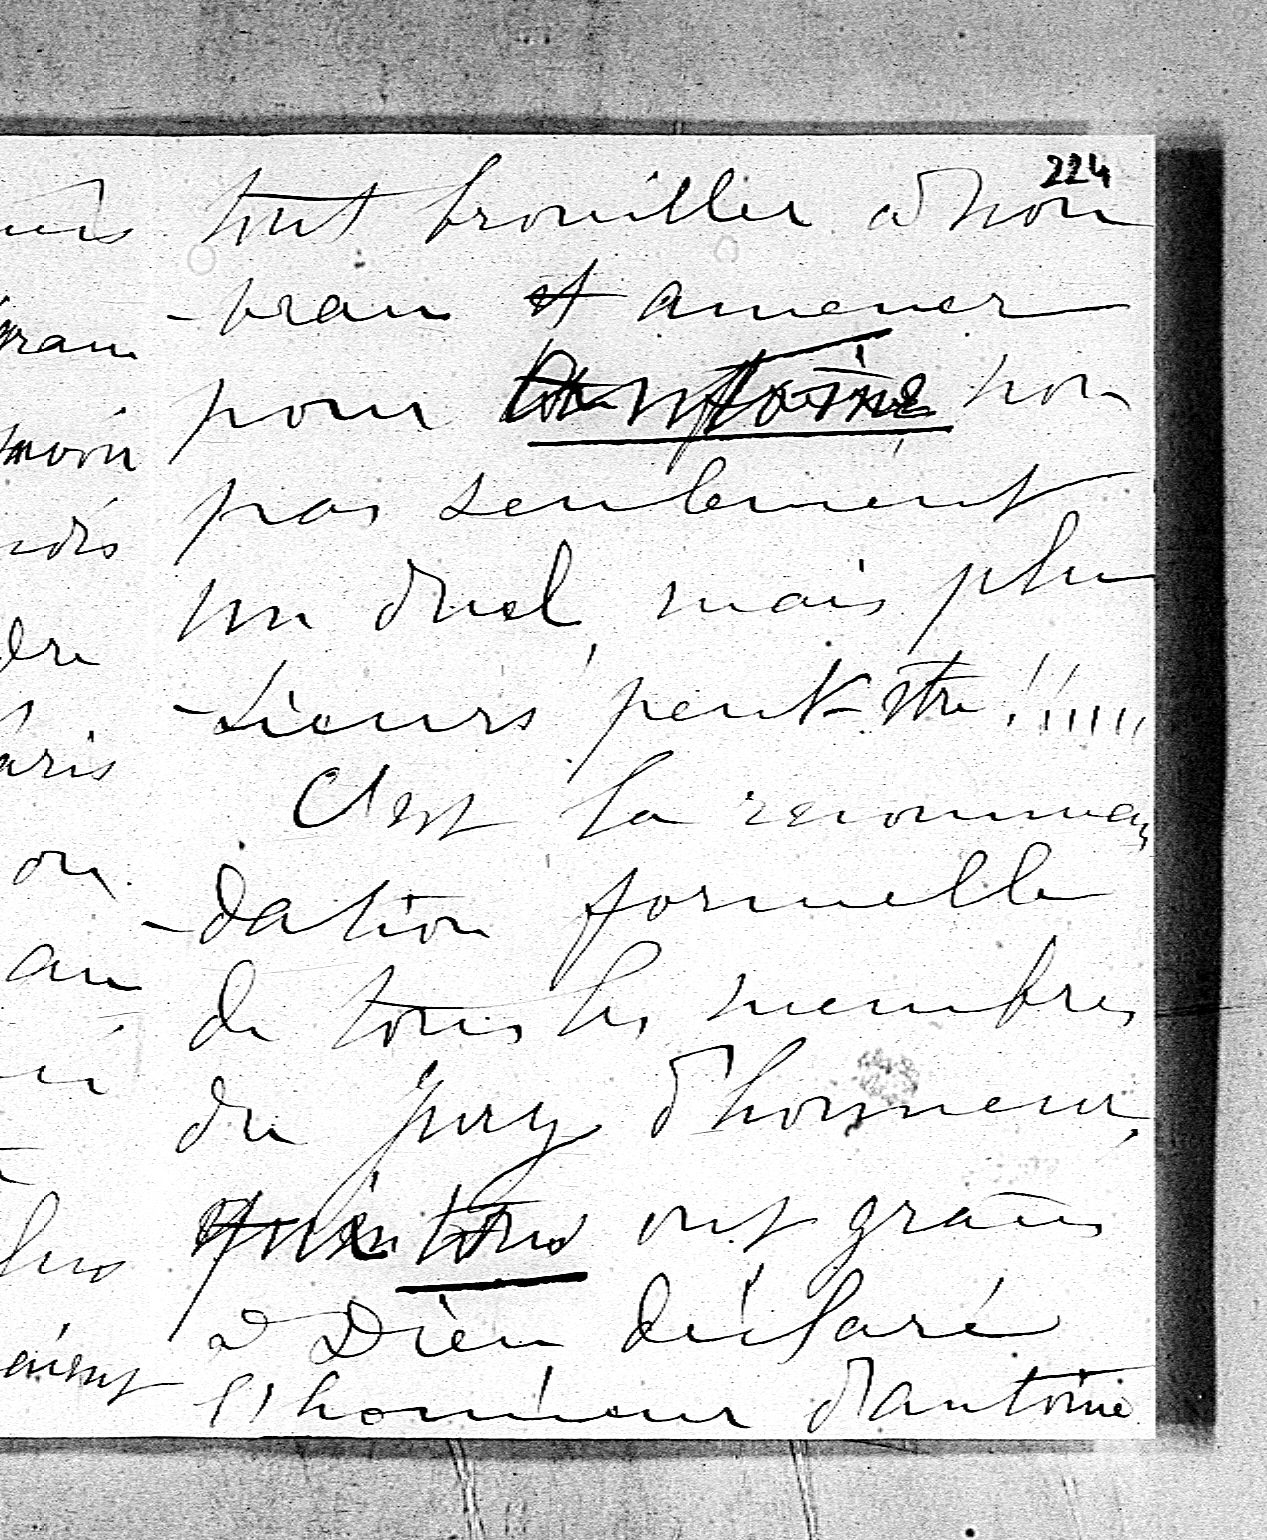 dre
aris
on
au
224
tout brouiller à nou
-veau et amener
pour Antoine non
pas seulement
un duel, mais plu
-sieurs peut-être !!,,,,,
C'est la recomman
-dation formelle
de tous les membres
du jury d'honneur,
qui tous ont grâces
à Dieu déclaré
l'honneur d'antoine